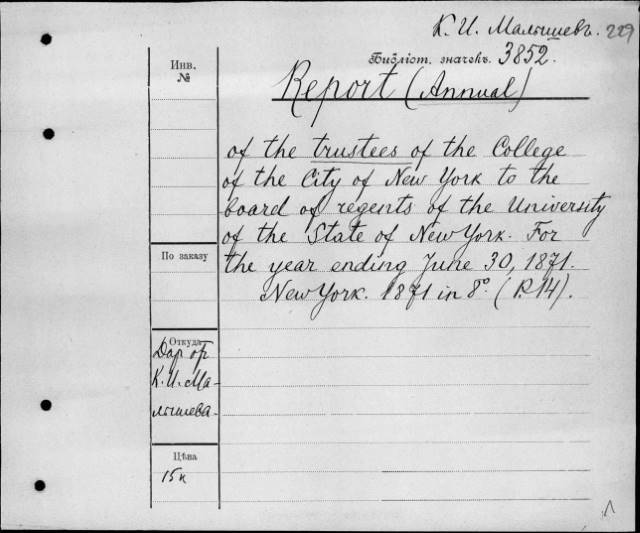 К. И. Малышевъ. 229
Инв.
№
Библіот. значекъ. 3852.
Report (Annual)
of the trustees of the College
of the City of New York to the
board of regents of the University
of the State of New York. For
По заказу
the year ending June 30, 1871.
New York. 1871 in 8° (P. 14).
Откуда
Дар от
К. И. Ма-
лышева.
Цѣва
15к